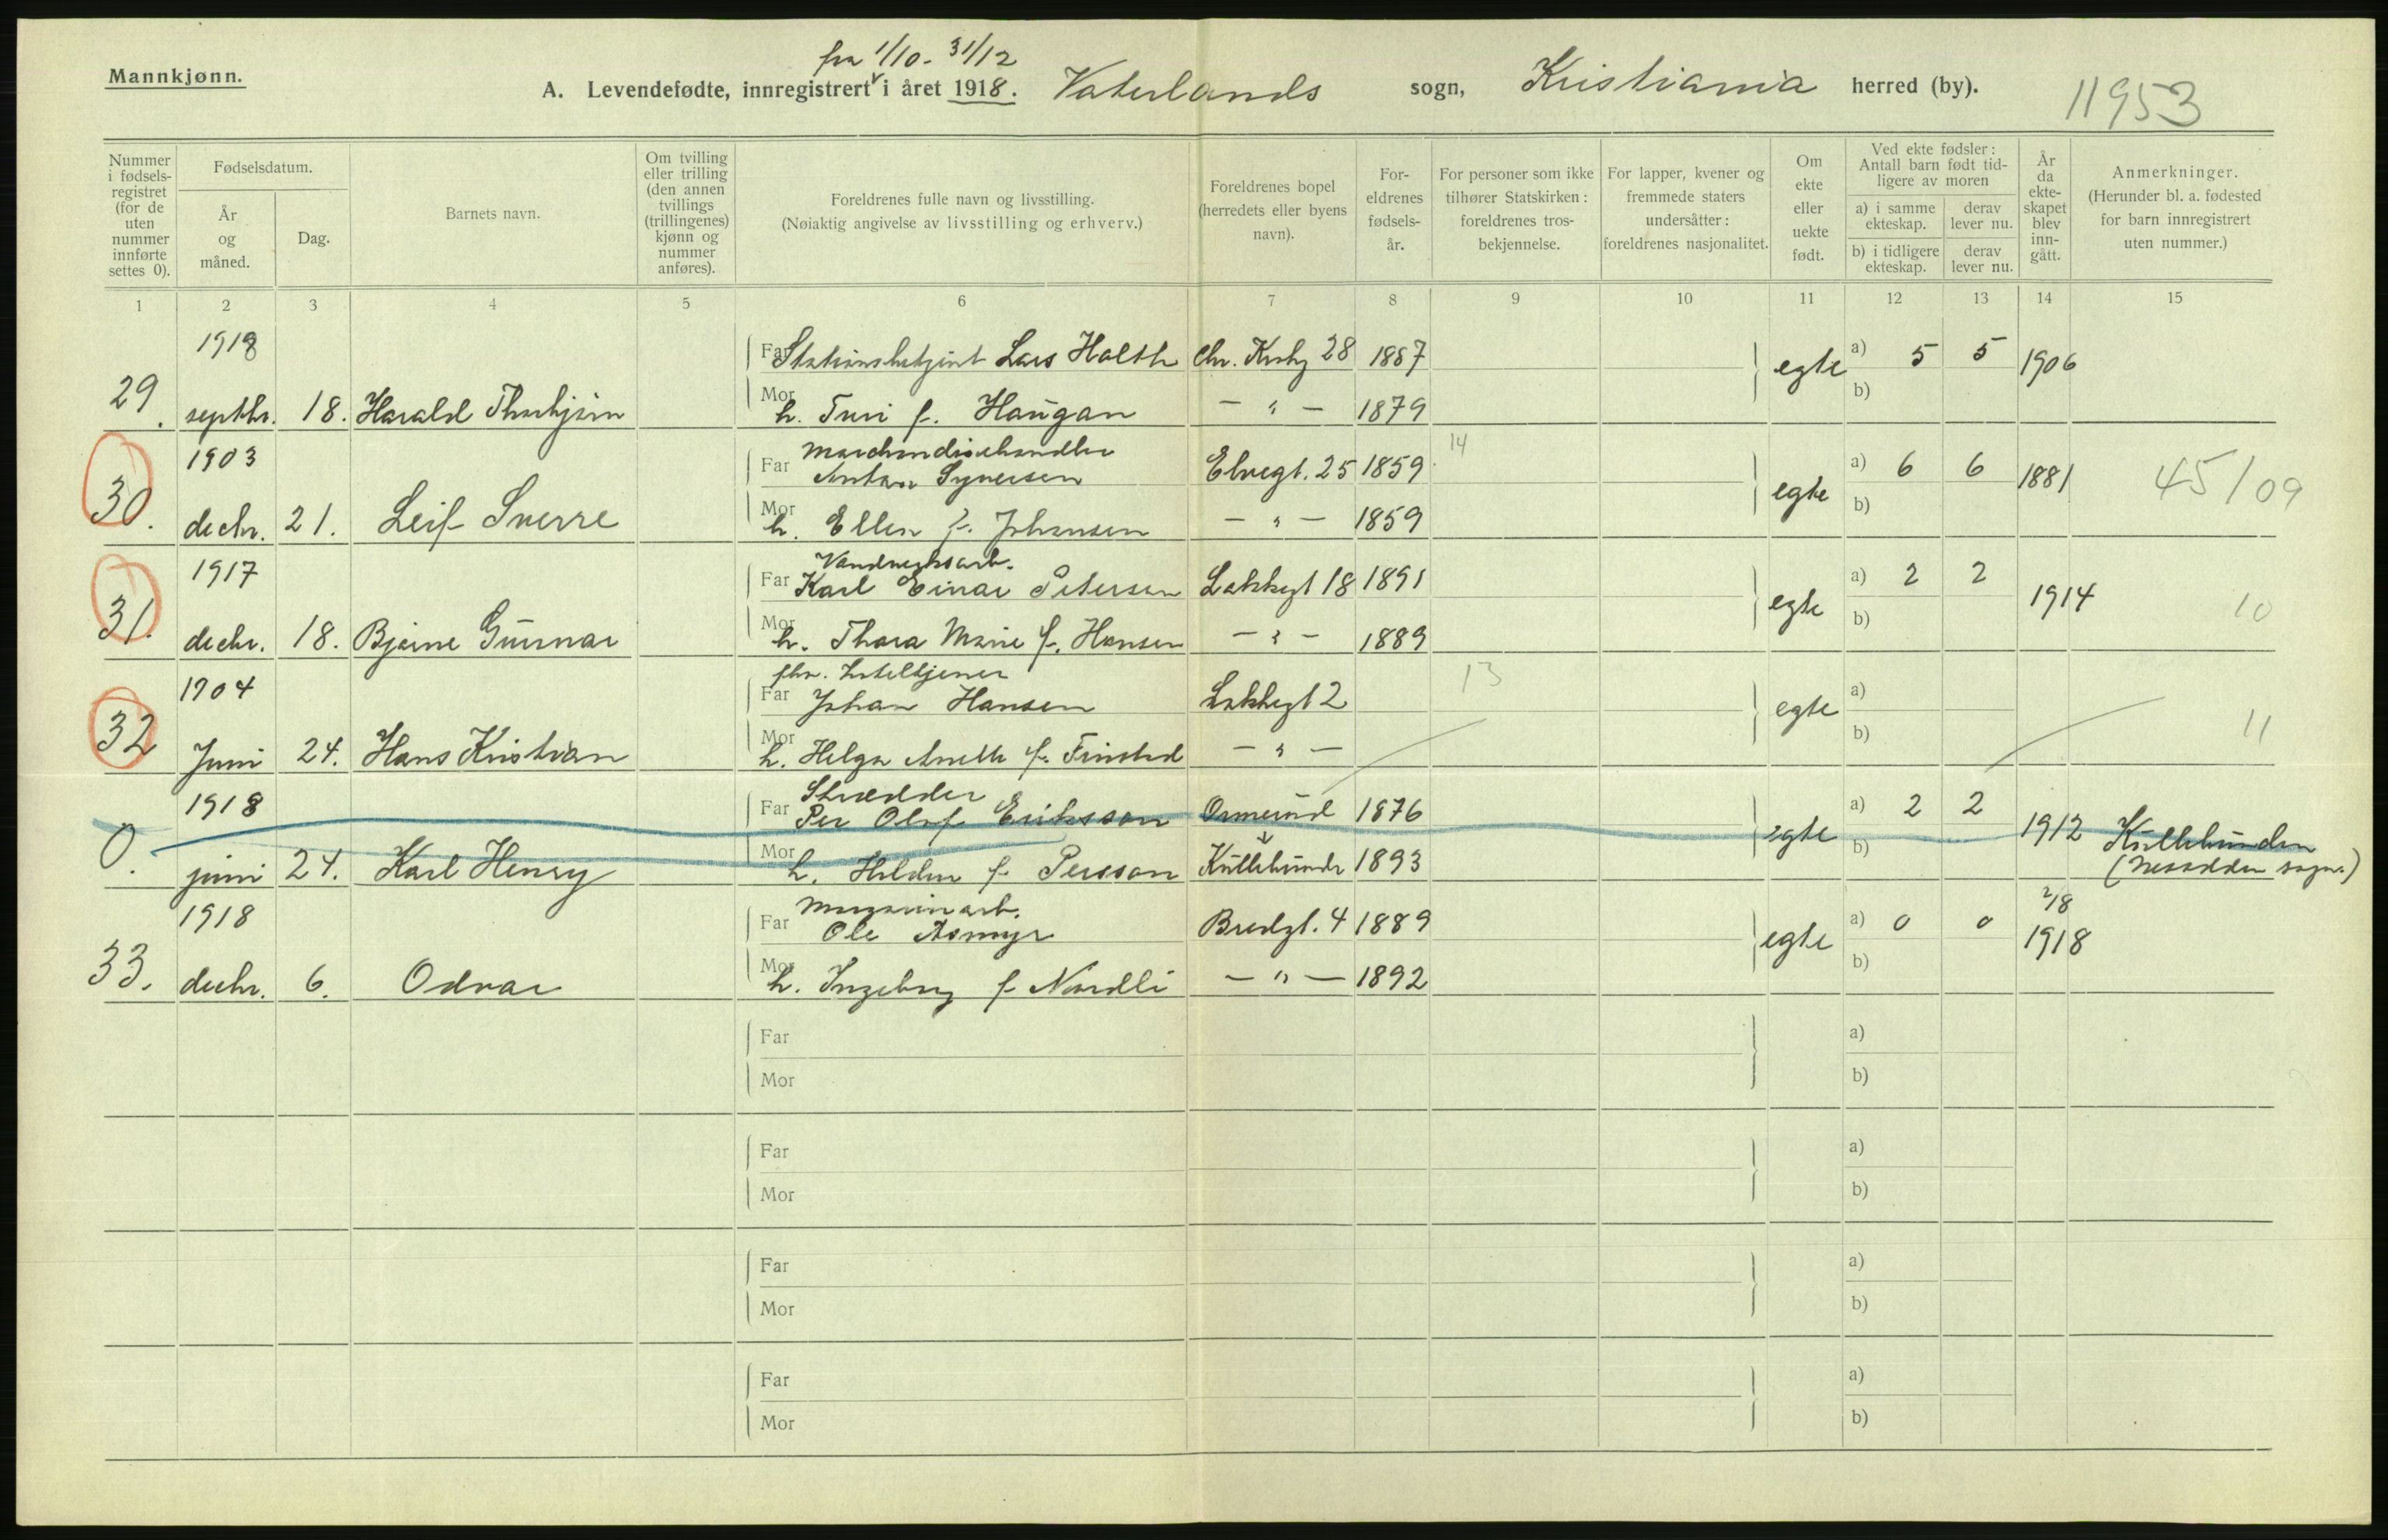 fra 1/10 - 31/12
Mannkjønn.
A. Levendefødte, innregistrert i året 1918. Vaterlands sogn, Kristiania herred (by).
11953
Nummer i fødsels-registret (for de uten nummer innførte settes 0).
Fødselsdatum.
År og måned.
Dag.
Barnets navn.
Om tvilling eller trilling (den annen tvillings (trillingenes) kjønn og nummer anføres).
Foreldrenes fulle navn og livsstilling.
(Nøiaktig angivelse av livsstilling og erhverv.)
Foreldrenes bopel (herredets eller byens navn).
For-eldrenes fødsels-år.
For personer som ikke tilhører Statskirken: foreldrenes tros-bekjennelse.
For lapper, kvener og fremmede staters undersåtter: foreldrenes nasjonalitet.
Om ekte eller uekte født.
Ved ekte fødsler: Antall barn født tid-ligere av moren
a) i samme ekteskap.
derav lever nu.
b) i tidligere ekteskap.
derav lever nu.
År da ekte-skapet blev inn-gått.
Anmerkninger.
(Herunder bl. a. fødested for barn innregistrert uten nummer.)
1 2 3 4 5 6 7 8 9 10 11 12 13 14 15
1918 Far Stationsbetjent Lars Holth Chr. Krohg 28 1887 egte a) 5 5 1906
29. septbr. 18. Harald Thorbjørn Mor h. Turi f. Haugan - " - 1879 b)
1903 Marchandisehandler
Far Anton Syversen Elvegt. 25 1859 14 egte a) 6 6 1881 45/09
30. decbr. 21. Leif Sverre Mor h. Ellen f. Johansen - " - 1859 b)
1917 Vandverksarb.
Far Karl Einar Petersen Lakkegt 18 1891 egte a) 2 2 1914 10
31. decbr. 18. Bjarne Gunnar Mor h. Thora Marie f. Hansen - " - 1889 b)
1904 fhv. Hotelltjener
Far Johan Hansen Lakkegt 2 13 egte a)
32 Juni 24. Hans Kristian Mor h. Helga Anette f. - " - b) 11
1918 Skrædder
Far Per Olof Eriksson Ormerud 1876 egte a) 2 2 1912 Kullebunden
0. juni 24. Karl Henry Mor h. Hilda f. Persson Kullebunde 1893 b) (Nesodden sogn.)
1918 Magasinarb.
Far Ole Åsmyr Bredgt. 4 1889 egte a) 0 0 2/8 1918
33. decbr. 6. Odvar Mor h. Ingeborg f Nordli - " - 1892 b)
Far a)
Mor b)
Far a)
Mor b)
Far a)
Mor b)
Far a)
Mor b)